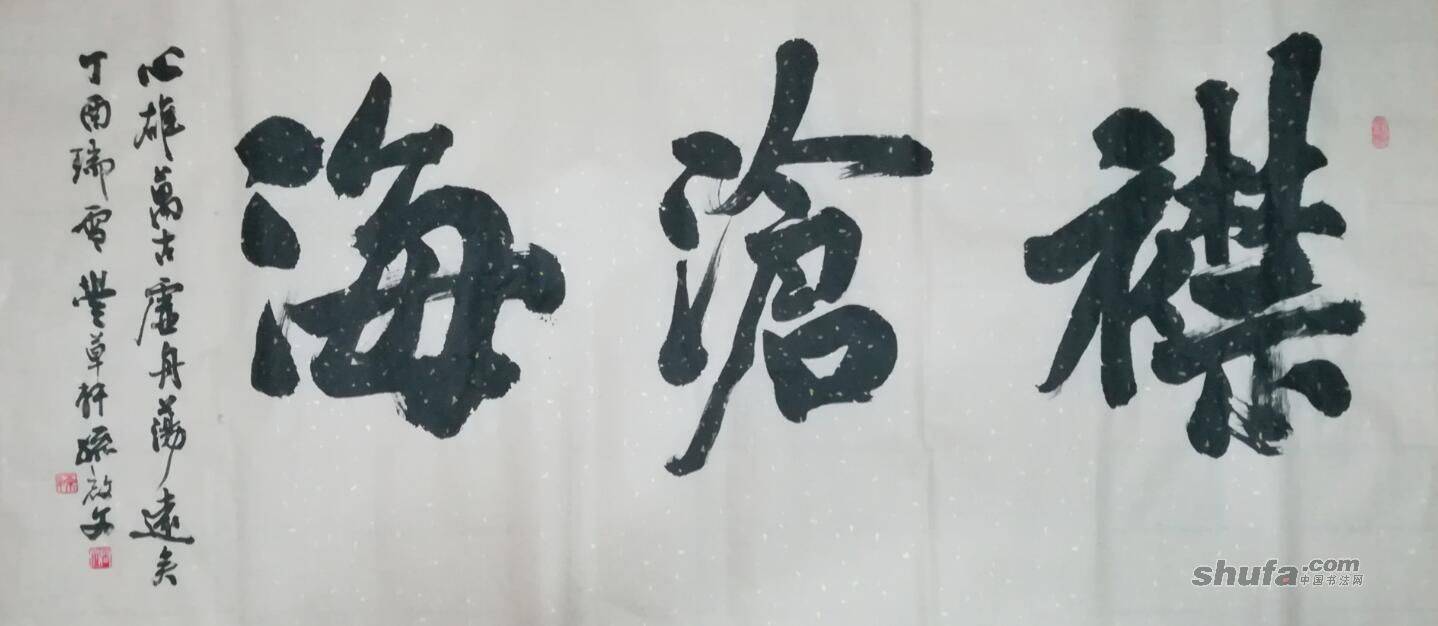 襟滄海
心雄萬古虛舟蕩遠矣
丁酉瑞雪豐草軒 啟文
shufa.com
中国书法网